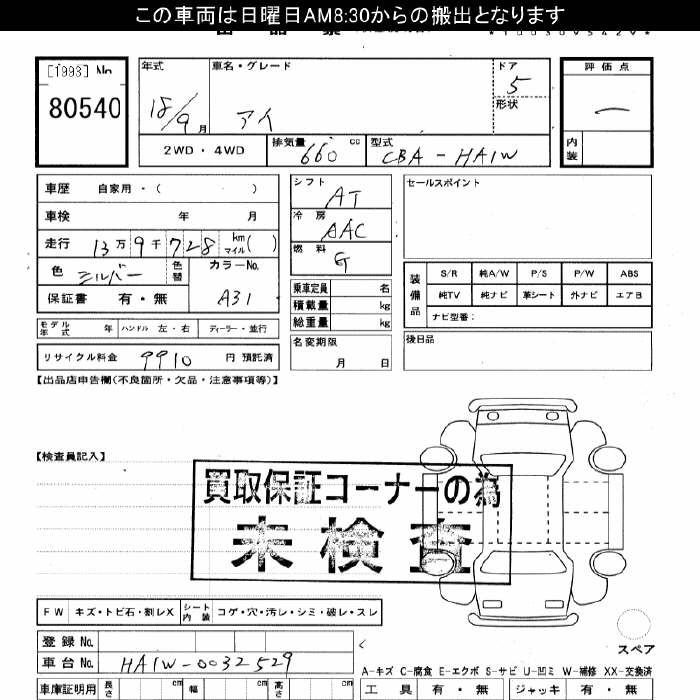 この車両は日曜日AM8:30からの搬出となります
[1993] No
80540
年式 車名・グレード ドア 評価点
18/9月 アイ 5 ー
形状
2WD・4WD 排気量 660 cc 型式 CBA-HA1W 内装
車歴 自家用・( )
車検 年 月
走行 13万9千728 km マイル( )
色 シルバー 色替 カラーNo. A31
保証書 有・無
モデル年式 年 ハンドル 左・右 ディーラー・並行
リサイクル料金 9910 円 預託済
シフト AT
冷房 AAC
燃料 G
乗車定員 名
積載量 kg
総重量 kg
名変期限
月 日
セールスポイント
装備品 S/R 純A/W P/S P/W ABS
純TV 純ナビ 革シート 外ナビ エアB
ナビ型番:
後日品
【出品店申告欄(不良箇所・欠品・注意事項等)】
【検査員記入】
買取保証コーナーの為
未検査
FW キズ・トビ石・割レX シート内装 コゲ・穴・汚レ・シミ・破レ・スレ
登録No.
車台No. HA1W-0032529
車庫証明用 長さ cm 幅 cm 高さ cm
スペア
A-キズ C-腐食 E-エクボ S-サビ U-凹ミ W-補修 XX-交換済
工具 有・無 ジャッキ 有・無